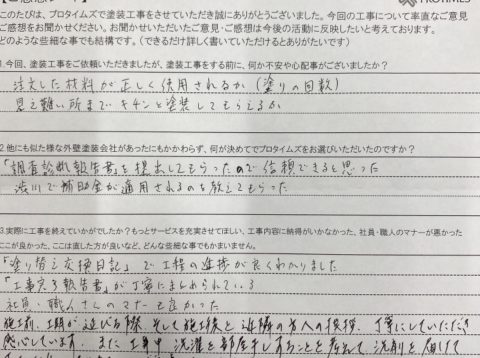 このたびは、プロタイムズで塗装工事をさせていただき誠にありがとうございました。今回の工事について率直なご意見
ご感想をお聞かせください。お聞かせいただいたご意見・ご感想は今後の活動に反映したいと考えております。
どのような些細な事でも結構です。(できるだけ詳しく書いていただけるとありがたいです)
1.今回、塗装工事をご依頼いただきましたが、塗装工事をする前に、何か不安や心配事がございましたか?
注文した材料が正しく使用されるか(塗りの回数)
見え難い所までキチンと塗装してもらえるか
2.他にも似た様な外壁塗装会社があったにもかかわらず、何が決めてでプロタイムズをお選びいただいたのですか?
「調査診断報告書」を提出してもらったので信頼できると思った
渋川で補助金が適用されるのを教えてもらった
3.実際に工事を終えていかがでしたか?もっとサービスを充実させてほしい、工事内容に納得がいかなかった、社員・職人のマナーが悪かった
ここが良かった、ここは直した方が良いなど、どんな些細な事でもかまいません。
「塗り替え交換日記」で工程の進捗が良くわかりました
「工事完了報告書」が丁寧にまとめられている
社員・職人さんのマナーも良かった
施工前、工期が延びる際、そして施工後と近隣の方への挨拶、丁寧にしていただき
感心しています。また工事中、洗濯を部屋干しすることを考えて、洗剤を届けて